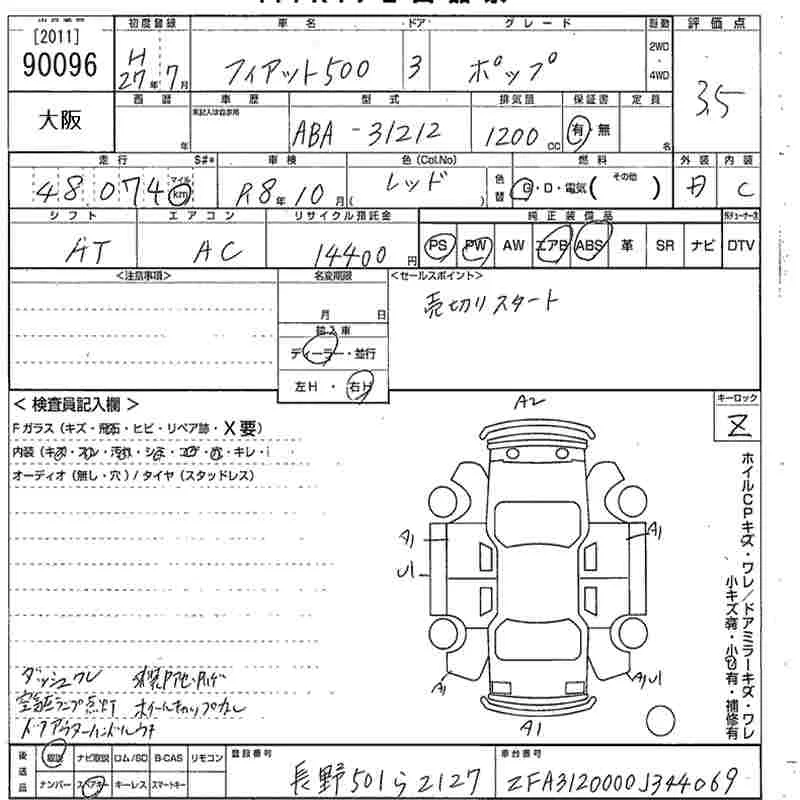 [2011]
90096
大阪
初度登録
H
27年 7月
車名
フィアット500
ドア
3
グレード
ポップ
駆動
2WD
・
4WD
評価点
3.5
西暦
年
車歴
未記入は自家用
型式
ABA - 31212
排気量
1200 CC
保証書
有・無
定員
名
走行
S#*
48074 マイル km
車検
R8年 10月
色(Col.No)
レッド
( )
色替
燃料
G・D・電気( その他 )
外装
内装
C
シフト
AT
エアコン
AC
リサイクル預託金
14400円
純正装備品
PS PW AW エアB ABS 革 SR ナビ DTV
<注意事項>
名変期限
月 日
輸入車
ディーラー・並行
左H・右H
<セールスポイント>
売切りスタート
<検査員記入欄>
Fガラス(キズ・飛石・ヒビ・リペア跡・X要)
内装(キズ・スレ・汚れ・シミ・コゲ・穴・キレ・
オーディオ(無し・穴)/タイヤ(スタッドレス)
キーロック
Z
A2
A1
A1
U1
A1
A1 U1
A1
ホイルCPキズ・ワレ/ドアミラーキズ・ワレ
小キズ有・小凹有・補修有
ダッシュワレ
空気圧ランプ点灯 ホイールキャップなし
ドアアウターハンドルウキ
後送品
取説 ナビ取説 ロム/SD B-CAS リモコン
ナンバー スペアキー キーレス スマートキー
登録番号
長野501ら2127
車台番号
ZFA3120000J344069